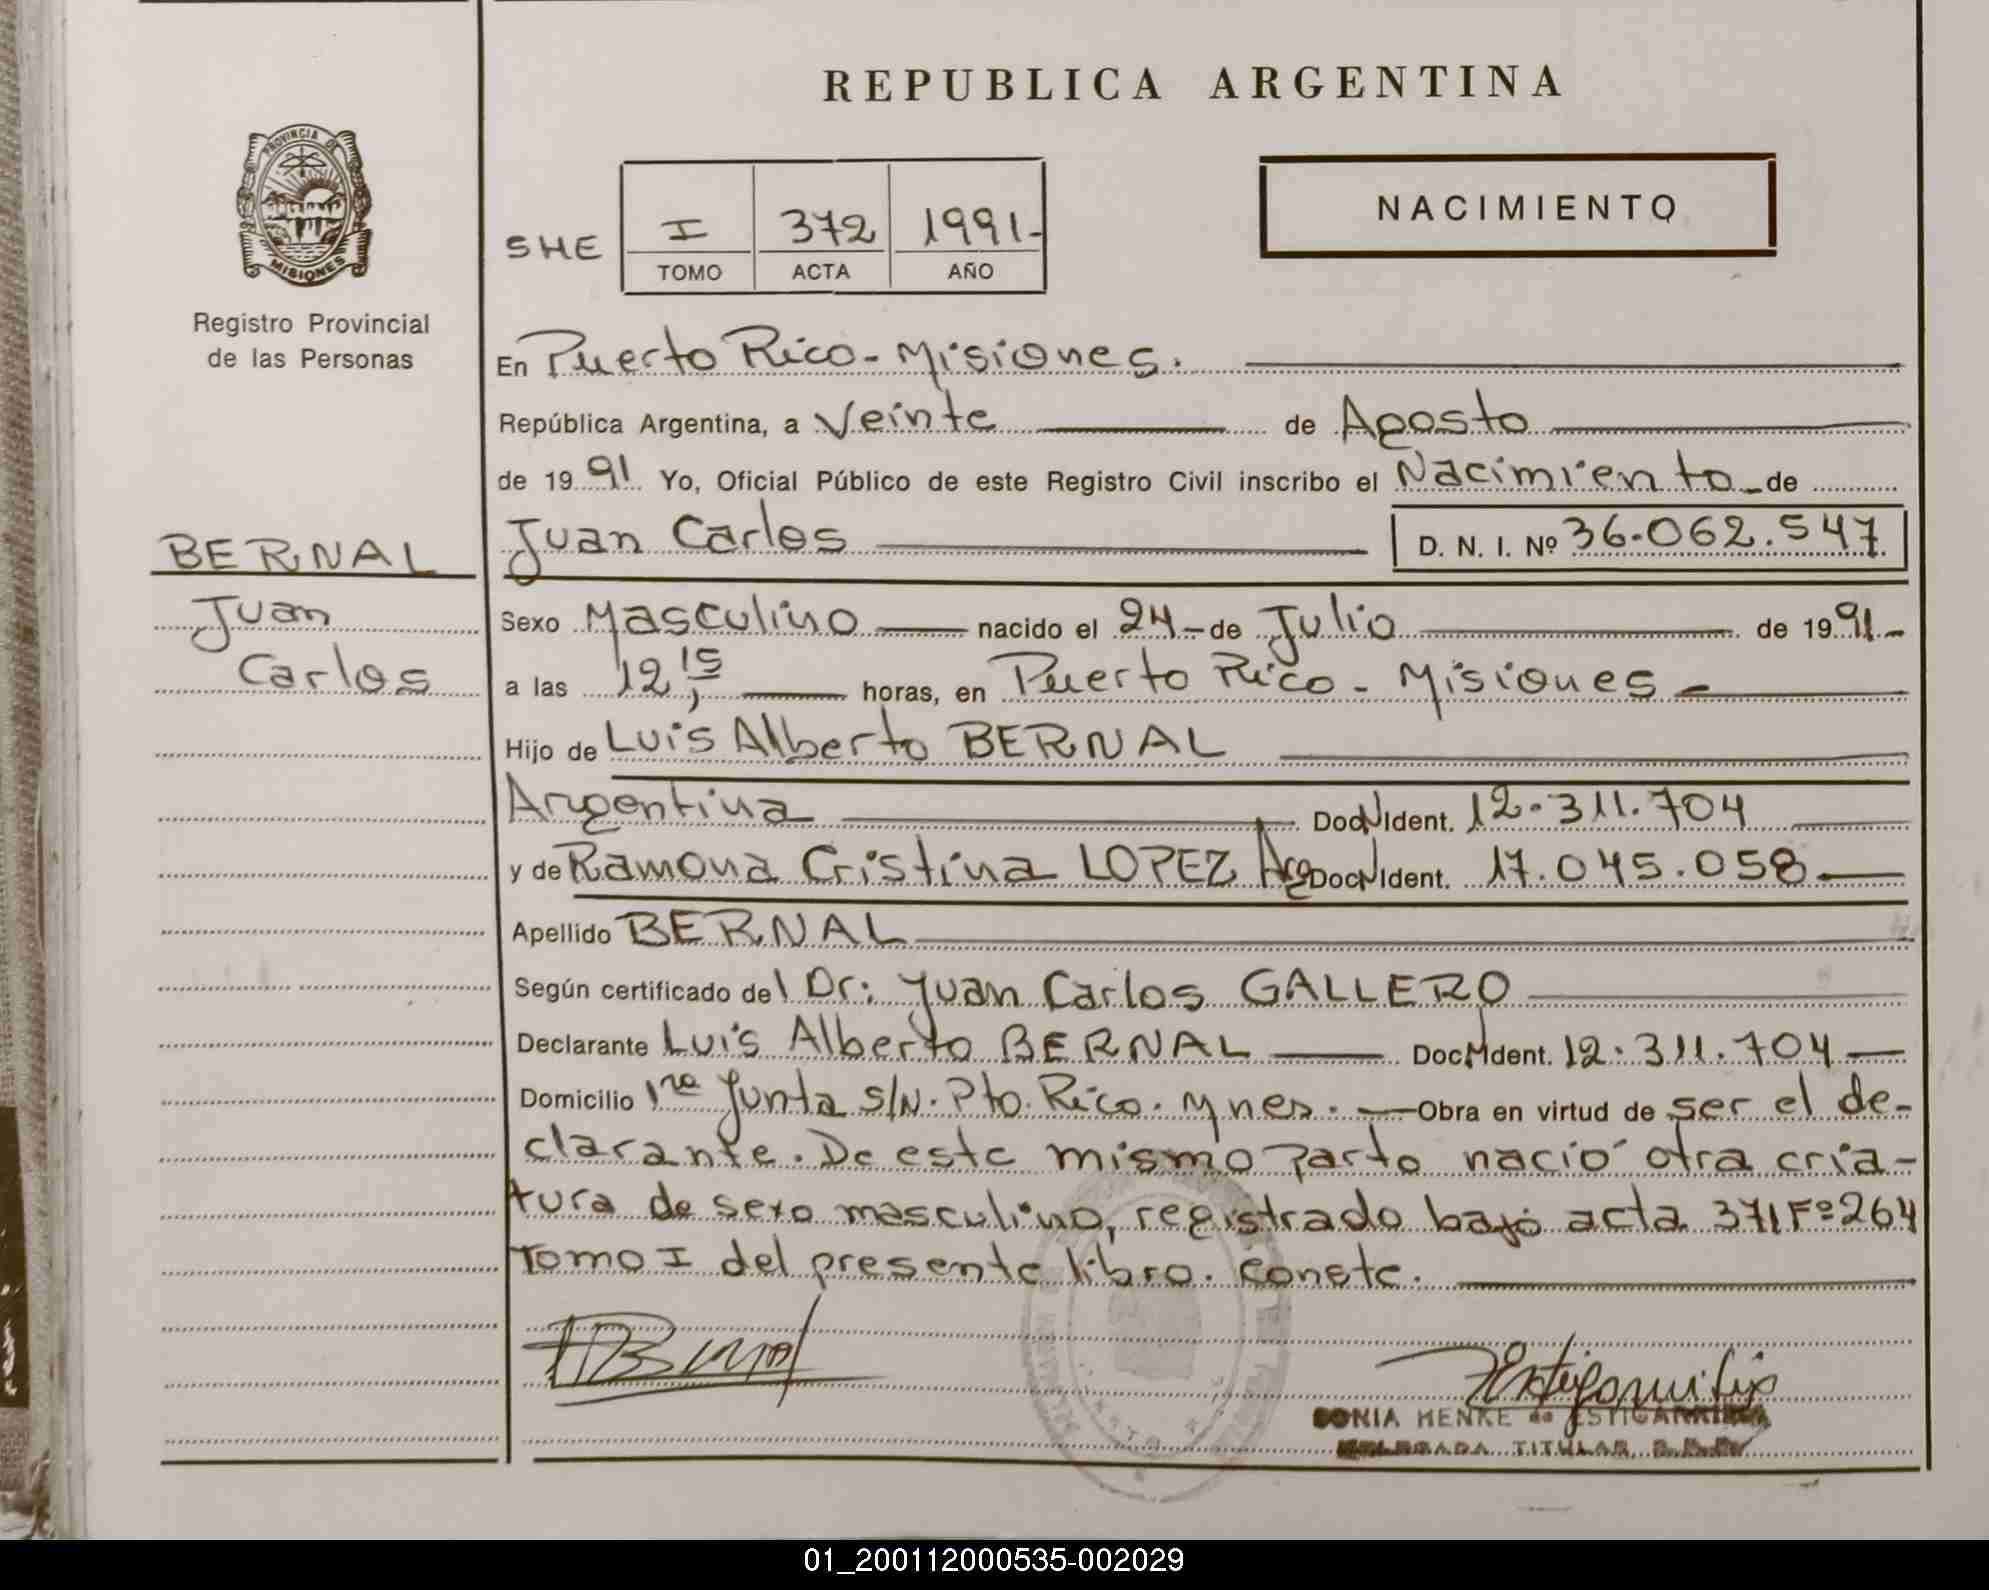 REPUBLICA ARGENTINA
PROVINCIA DE MISIONES
Registro Provincial
de las Personas
NACIMIENTO
SHE I 372 1991-
TOMO ACTA AÑO
En Puerto Rico - Misiones.
República Argentina, a Veinte de Agosto
de 1991 Yo, Oficial Público de este Registro Civil inscribo el Nacimiento de
BERNAL
Juan Carlos D. N. I. Nº 36.062.547
Juan
Carlos
Sexo Masculino nacido el 24 - de Julio de 1991.-
a las 12,15 horas, en Puerto Rico - Misiones -
Hijo de Luis Alberto BERNAL
Argentina Doc N Ident. 12.311.704
y de Ramona Cristina LOPEZ Arg Doc N Ident. 17.045.058
Apellido BERNAL
Según certificado del Dr: Juan Carlos GALLERO
Declarante Luis Alberto BERNAL Doc N Ident. 12.311.704
Domicilio 1ra Junta s/N. Pto. Rico. Mnes. - Obra en virtud de ser el de-
clarante. De este mismo parto nació otra cria-
tura de sexo masculino, registrado bajo acta 371 Fº 264
Tomo I del presente libro. Conste.
SONIA HENKE de ESTIGARRIBIA
DELEGADA TITULAR
01_200112000535-002029